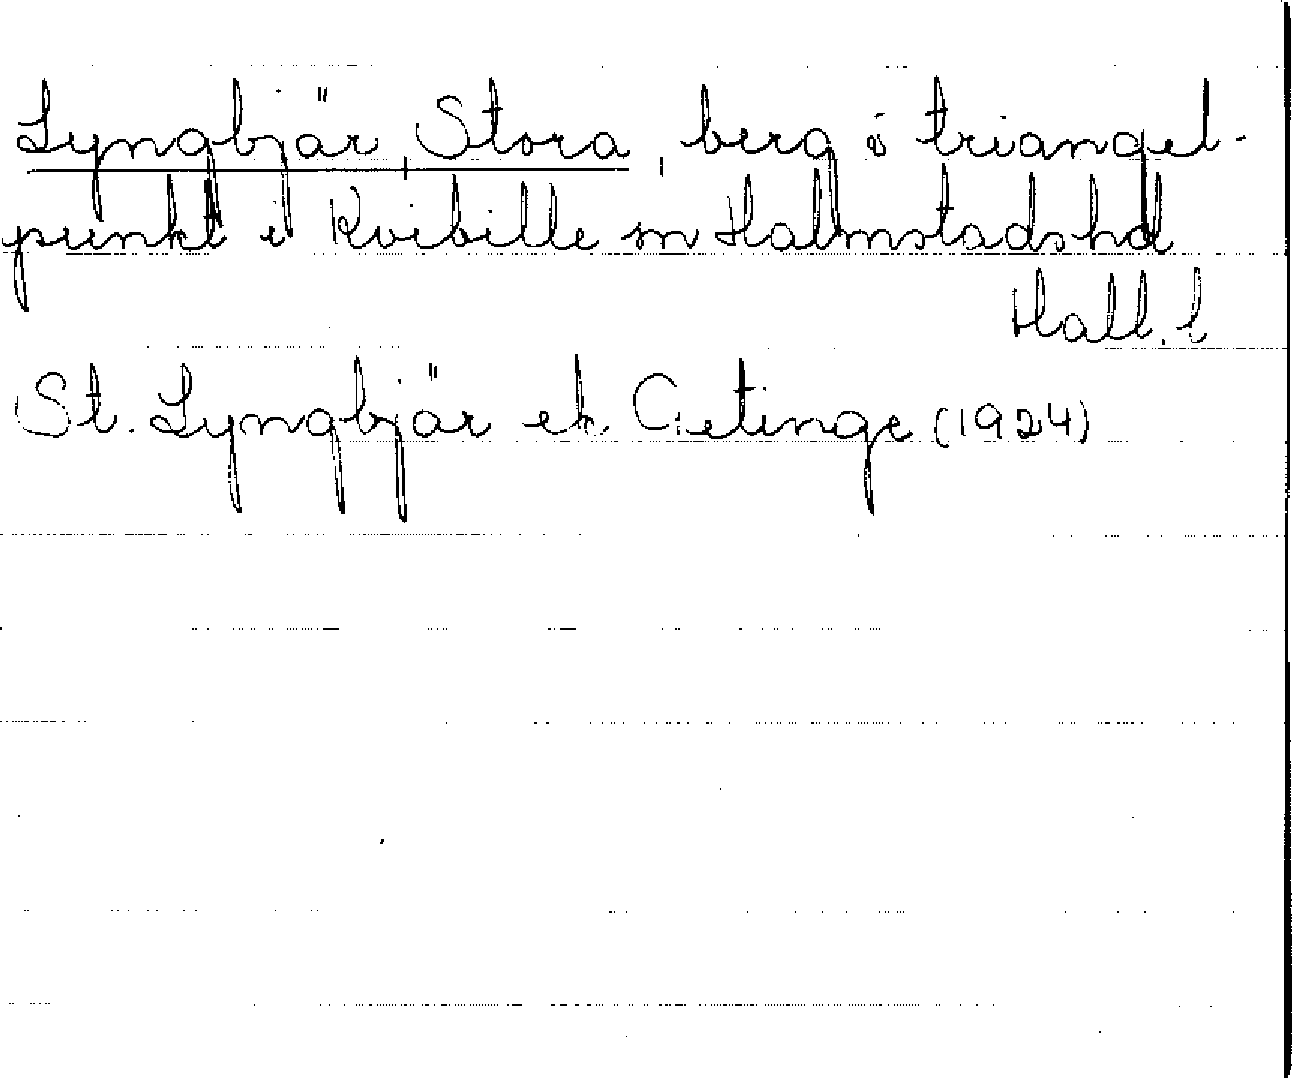 Lyngbjär, Stora, berg o triangel-
punkt i Kvibille sn Halmstads hd
Hall. l
St. Lyngbjär ek. Getinge (1924)